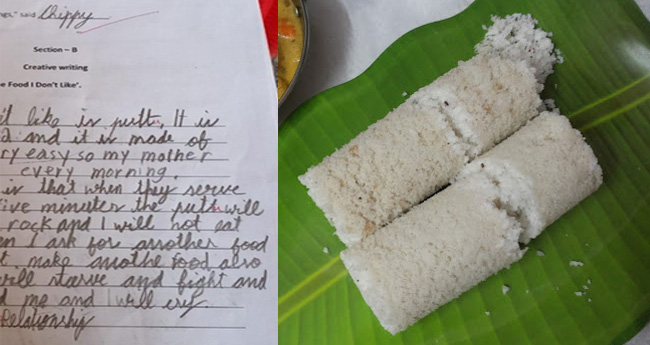 " said Chippy
Section – B
Creative writing
e Food I Don't Like'.
t like is putt. It is
and it is made of
ry easy so my mother
every morning.
is that when they serve
ive minutes the putt will
rock and I will not eat
n I ask for another food
t make anothe food also
will starve and fight and
d me and I will cry.
Relationship